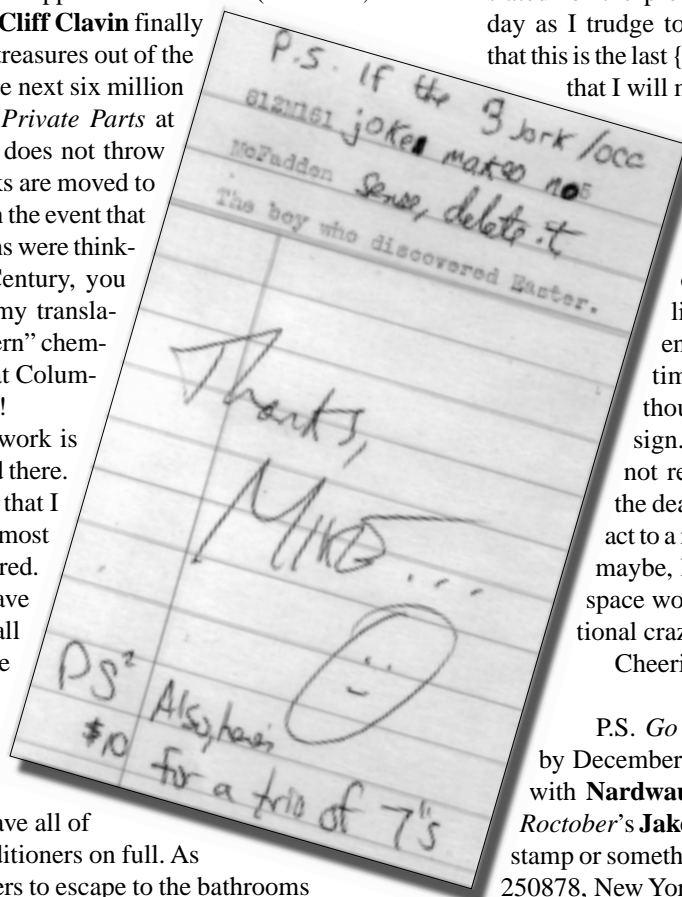 Cliff Clavin finally
treasures out of the
e next six million
Private Parts at
does not throw
ks are moved to
n the event that
ns were think-
Century, you
my transla-
ern” chem-
at Colum-
!
work is
d there.
that I
most
red.
ave
all
e
ave all of
ditioners on full. As
ers to escape to the bathrooms
P.S. If the
612M161 joke makes no
McFadden sense, delete it
The boy who discovered Easter.
Thanks,
MIKE...
PS² Also,
$10 for a trio of 7"s
day as I trudge to
that this is the last {
that I will
li
en
tim
thou
sign.
not re
the dea
act to a
maybe,
space wo
tional craz
Cheeri
P.S. Go
by December
with Nardwau
Roctober's Jake
stamp or someth
250878, New Yor